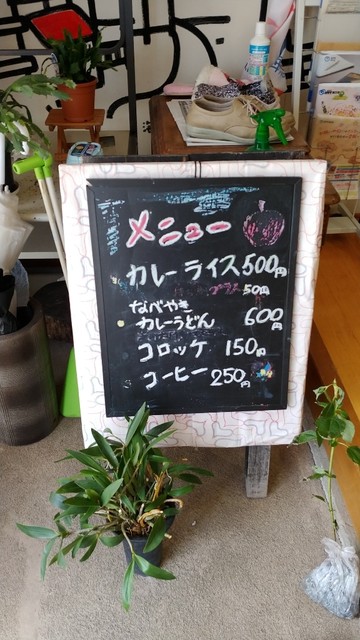 メニュー
カレーライス500円
プラス 50円
なべやき
カレーうどん 600円
コロッケ 150円
コーヒー 250円